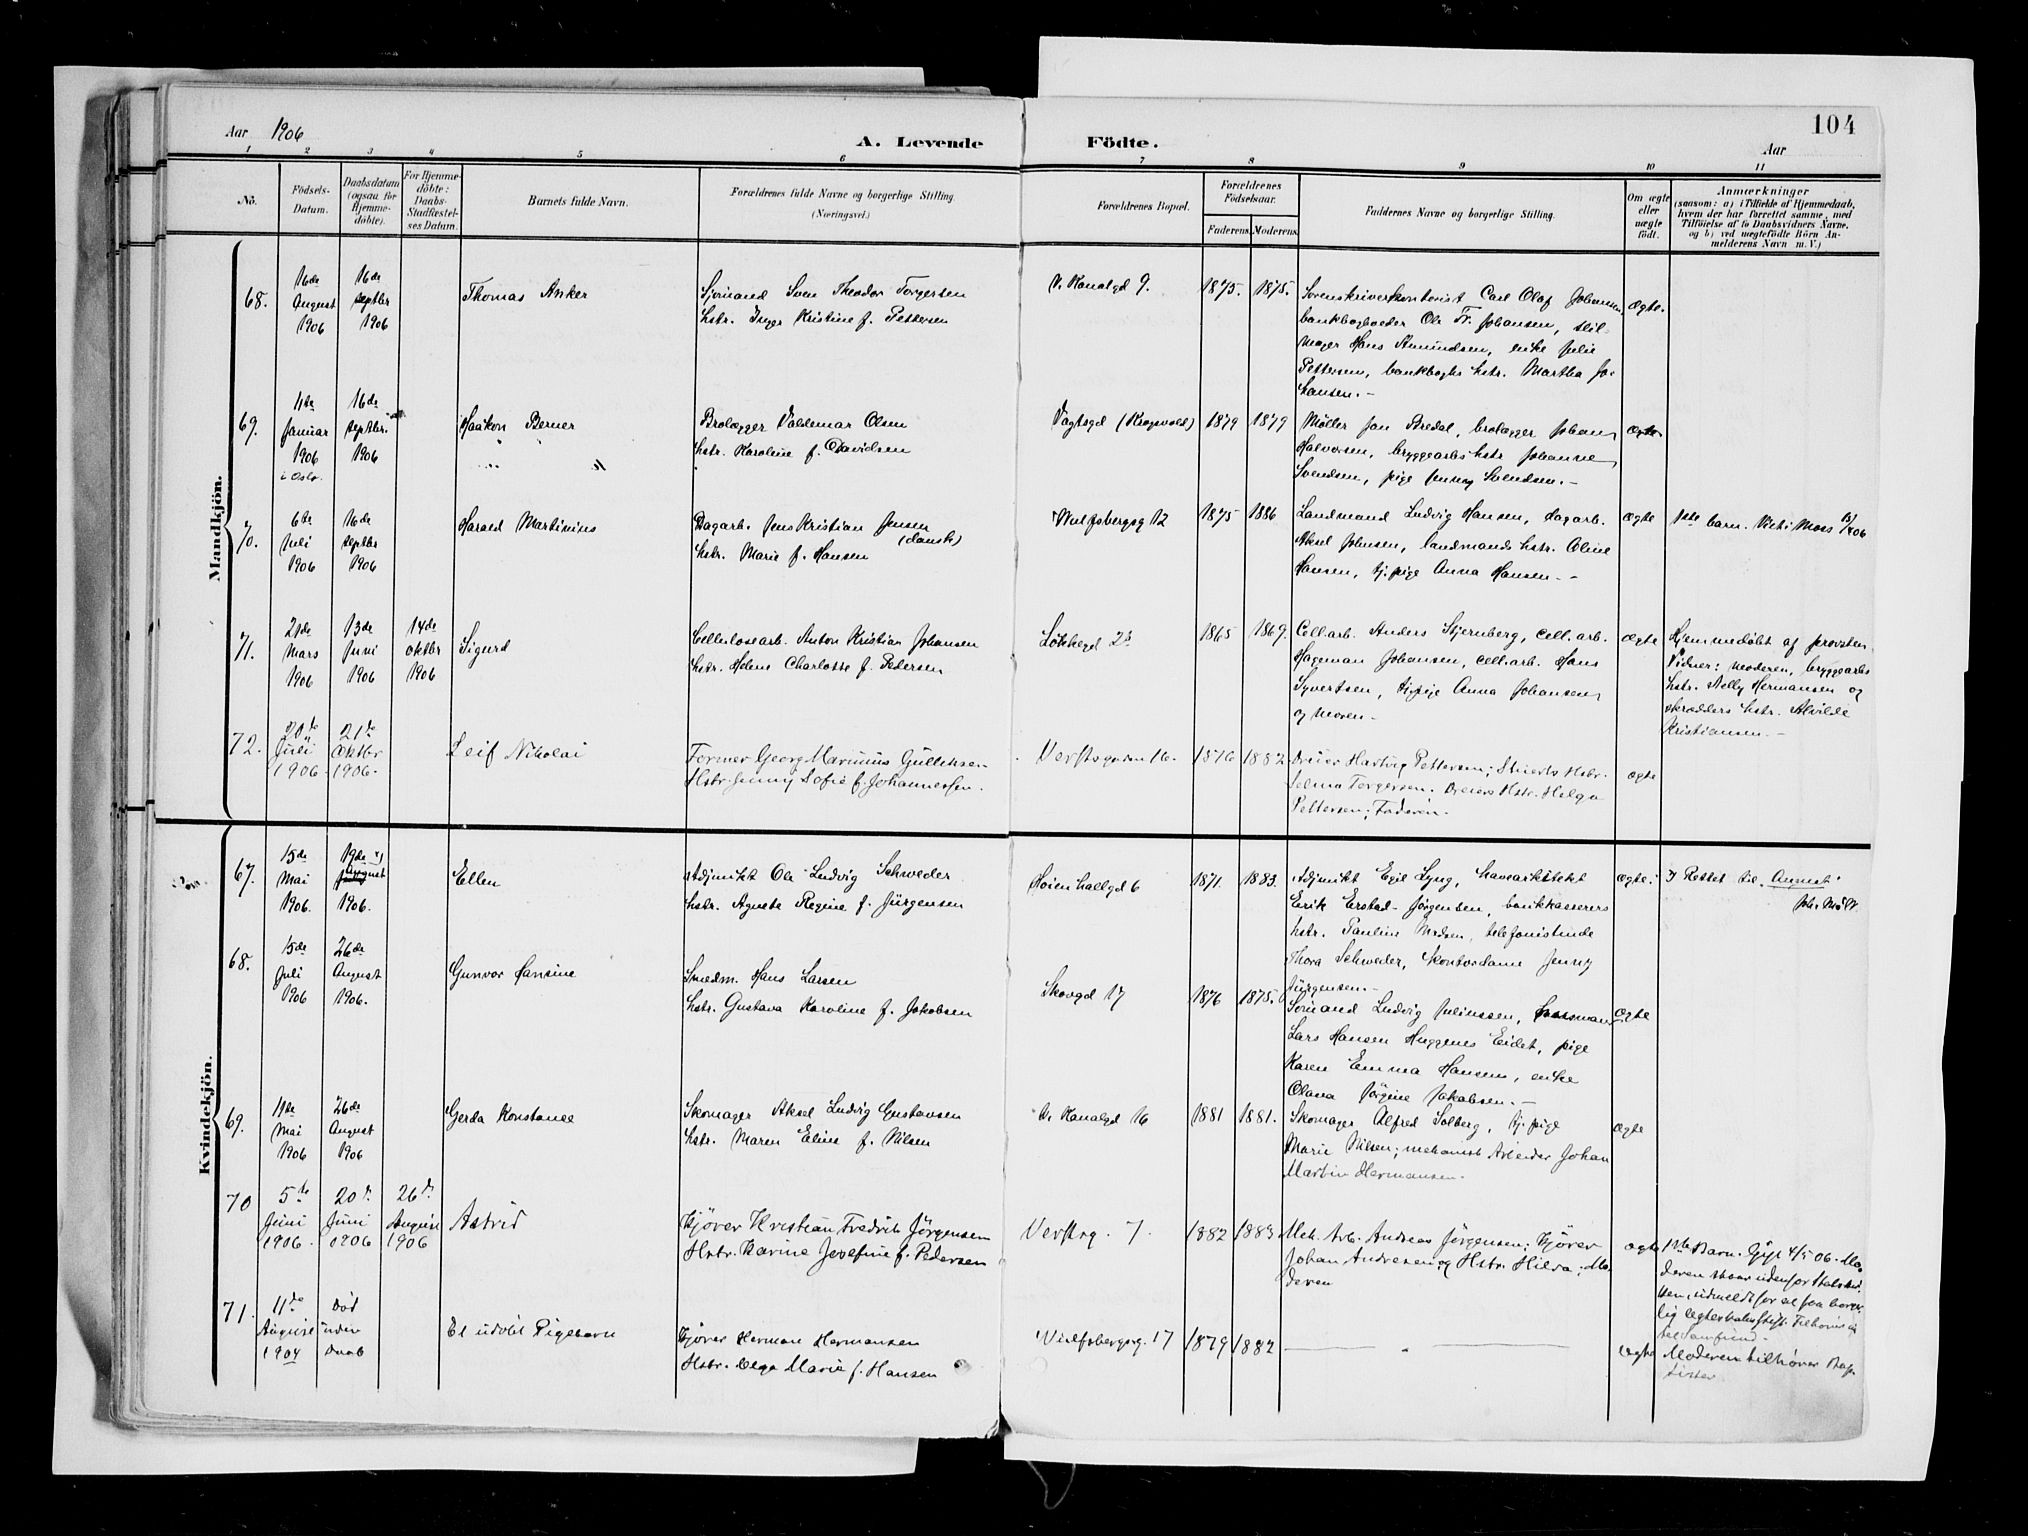 Aar 1906
A. Levende Födte.
104
Aar
1 2 3 4 5 6 7 8 9 10 11
No.
Födsels-
Datum.
Daabsdatum
(ogsaa for
Hjemme-
döbte).
For Hjemme-
döbte:
Daabs-
Stadfæstel-
ses Datum.
Barnets fulde Navn.
Forældrenes fulde Navne og borgerlige Stilling
(Næringsvei.)
Forældrenes Bopæl.
Forældrenes
Födselsaar.
Faderens. Moderens.
Faddernes Navne og borgerlige Stilling.
Om ægte
eller
uægte
födt.
Anmærkninger
(saasom: a) i Tilfælde af Hjemmedaab,
hvem der har forrettet samme, med
Tilföielse af to Daabsvidners Navne,
og b) ved uægtefödte Börn An-
melderens Navn m. V.)
Mandkjön.
68.
16de
August
1906
16de
septbr
1906
Thomas Anker
Sjömand Sven Theodor Torgersen
hstr. Inger Kristine f. Pettersen
V. Kanalgd 9.
1875. 1875.
Sorenskriverkontorist Carl Olaf Johansen
bankbogholder Ole Fr. Johansen, stil-
mager Hans Amundsen, enke Julie
Pettersen, bankboghs hstr. Martha Jo-
hansen.-
ægte.
69.
11te
Januar
1906
i Oslo.
16de
septbr.
1906
Haakon Berner
Brolægger Valdemar Olsen
hstr. Karoline f. Davidsen
Vagtsgd (Krogsvold)
1879 1879
Møller Jan Bredal, brolægger Johan
Halvorsen, bryggearbs hstr Johanne
Svendsen, pige Jenny Svendsen.-
ægte.
70.
6te
Juli
1906
16de
septbr
1906
Harald Martinius
Dagarb. Jens Kristian Jensen
(dansk)
hstr. Marie f. Hansen
Wulfsbergsg 12
1875 1886
Landmand Ludvig Hansen, dagarb.
Aksel Johnsen, landmands hstr. Oline
Hansen, tj. pige Anna Hansen.-
ægte
1ste barn. Viet i Moss
71.
21de
Mars
1906
13de
Juni
1906
14de
oktbr
1906
Sigurd
Cellulosearb. Anton Kristian Johansen
hstr. Helene Charlotte f. Pedersen
Løkkegd 23
1865 1869.
Cell.arb. Anders Stjernberg, cell.arb.
Hageman Johansen, cell.arb. Hans
Syvertsen, tj.pige Anna Johansen
og moren.-
ægte
Hjemmedøbt af provsten.
Vidner: moderen, bryggearbs
hstr. Nelly Hermansen og
skrædders hstr. Alvilde
Kristiansen.-
72.
20de
Juli
1906
21de
Oktbr
1906.
Leif Nikolai
Former Georg Marinius Gulliksen
Hstr. Jenny Sofie f. Johannessen.
Verftsgaden 16.
1876 1882
Dreier Hartvig Pettersen; Stuerts Hstr.
Selma Torgersen. Dreiers Hstr. Helga
Pettersen; Faderen.
ægte
Kvindekjön.
67.
15de
Mai
1906.
19de x)
August
1906.
Ellen
Adjunkt Ole Ludvig Schweder
hstr. Agnete Regine f. Jürgensen
Høienhallgd 6
1871. 1883.
Adjunkt Egil Lyng, havearkitekt
Erik Erstad-Jørgensen, bankkasserers
hstr. Pauline Madsen, telefonistinde
Thora Schweder, Kontordame Jenny
Jürgensen.-
ægte.
x) Rettet til „August"
Joh. Møller
68.
15de
Juli
1906
26de
August
1906.
Gunvor Hansine
Smedm. Hans Larsen
hstr. Gustava Karoline f. Jakobsen
Skovgd 17
1876 1875.
Sømand Ludvig Juliussen,
Lars Hansen Huggenes Eidet, pige
Karen Emma Hansen, enke
Olava Jørgine Jakobsen.-
ægte
69.
11te
Mai
1906
26de
August
1906
Gerda Konstance
Skomager Aksel Ludvig Gustavsen
hstr. Maren Eline f. Nilsen
V. Kanalgd 16
1881 1881.
Skomager Alfred Solberg, tj. pige
Marie Nilsen; mekanisk Arbeider Johan
Martin Hermansen.
ægte
70
5te
Juni
1906.
20de
Juni
1906
26de
August
1906
Astrid
Kjører Kristian Fredrik Jörgensen
Hstr. Karine Josefine f. Pedersen
Verftsg. 7.
1882 1883
Mek. Arb. Andreas Jørgensen; Kjører
Johan Andresen og Hstr. Hilda; Mo-
deren
ægte
1ste Barn. Gift 4/5 06. Mo-
deren staar udenfor Statskir-
ken, udmeldt for at faa borger-
lig
71.
11te
August
1904
Død
uden
Daab
Et udøbt Pigebarn
Kjører Herman Hermansen
Hstr. Olga Marie f. Hansen
Wulfsbergsg. 17
1879 1882
ægte
Moderen tilhører Bap-
tister